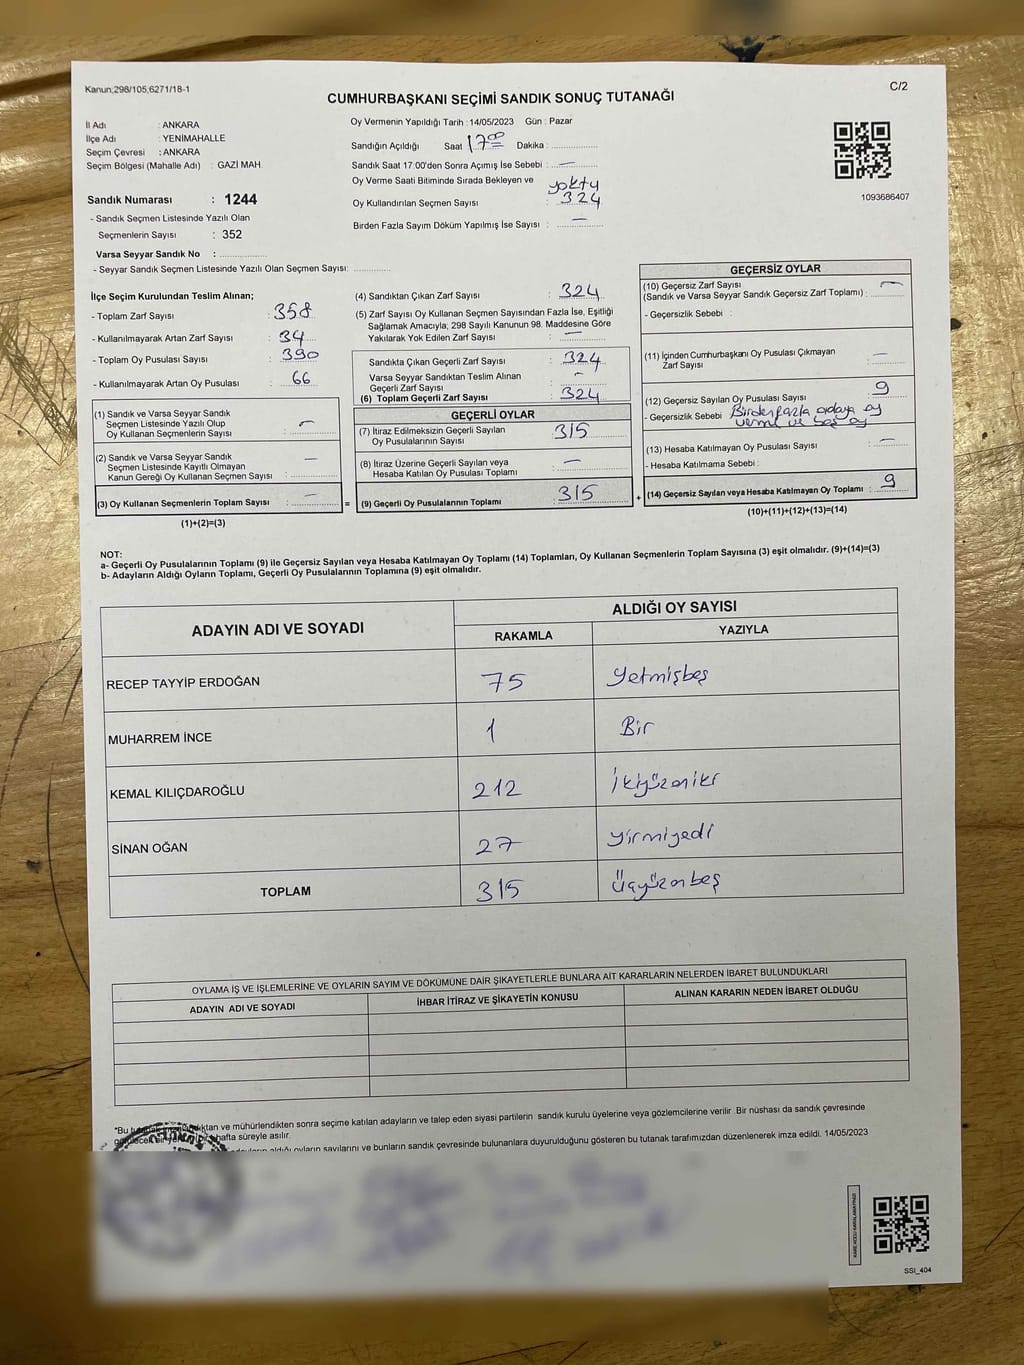 Kanun;298/105,6271/18-1
C/2
CUMHURBAŞKANI SEÇİMİ SANDIK SONUÇ TUTANAĞI
İl Adı : ANKARA
İlçe Adı : YENİMAHALLE
Seçim Çevresi : ANKARA
Seçim Bölgesi (Mahalle Adı) : GAZİ MAH.
Sandık Numarası : 1244
- Sandık Seçmen Listesinde Yazılı Olan
Seçmenlerin Sayısı : 352
Varsa Seyyar Sandık No :
- Seyyar Sandık Seçmen Listesinde Yazılı Olan Seçmen Sayısı:
Oy Vermenin Yapıldığı Tarih : 14/05/2023 Gün : Pazar
Sandığın Açıldığı Saat 17:00 Dakika :
Sandık Saat 17:00'den Sonra Açılmış İse Sebebi : —
Oy Verme Saati Bitiminde Sırada Bekleyen ve yoktu
Oy Kullandırılan Seçmen Sayısı : 324
Birden Fazla Sayım Döküm Yapılmış İse Sayısı : —
1093686407
İlçe Seçim Kurulundan Teslim Alınan;
- Toplam Zarf Sayısı : 358
- Kullanılmayarak Artan Zarf Sayısı : 34
- Toplam Oy Pusulası Sayısı : 390
- Kullanılmayarak Artan Oy Pusulası : 66
(1) Sandık ve Varsa Seyyar Sandık
Seçmen Listesinde Yazılı Olup
Oy Kullanan Seçmenlerin Sayısı : —
(2) Sandık ve Varsa Seyyar Sandık
Seçmen Listesinde Kayıtlı Olmayan
Kanun Gereği Oy Kullanan Seçmen Sayısı : —
(3) Oy Kullanan Seçmenlerin Toplam Sayısı : — =
(1)+(2)=(3)
(4) Sandıktan Çıkan Zarf Sayısı : 324
(5) Zarf Sayısı Oy Kullanan Seçmen Sayısından Fazla İse, Eşitliği
Sağlamak Amacıyla; 298 Sayılı Kanunun 98. Maddesine Göre
Yakılarak Yok Edilen Zarf Sayısı : —
Sandıkta Çıkan Geçerli Zarf Sayısı : 324
Varsa Seyyar Sandıktan Teslim Alınan
Geçerli Zarf Sayısı : -
(6) Toplam Geçerli Zarf Sayısı : 324
GEÇERLİ OYLAR
(7) İtiraz Edilmeksizin Geçerli Sayılan
Oy Pusulalarının Sayısı : 315
(8) İtiraz Üzerine Geçerli Sayılan veya
Hesaba Katılan Oy Pusulası Toplamı : —
(9) Geçerli Oy Pusulalarının Toplamı : 315 +
GEÇERSİZ OYLAR
(10) Geçersiz Zarf Sayısı
(Sandık ve Varsa Seyyar Sandık Geçersiz Zarf Toplamı) : —
- Geçersizlik Sebebi :
(11) İçinden Cumhurbaşkanı Oy Pusulası Çıkmayan
Zarf Sayısı : —
(12) Geçersiz Sayılan Oy Pusulası Sayısı : 9
- Geçersizlik Sebebi : Birden fazla adaya oy
ve boş oy
(13) Hesaba Katılmayan Oy Pusulası Sayısı : —
- Hesaba Katılmama Sebebi :
(14) Geçersiz Sayılan veya Hesaba Katılmayan Oy Toplamı : 9
(10)+(11)+(12)+(13)=(14)
NOT:
a- Geçerli Oy Pusulalarının Toplamı (9) ile Geçersiz Sayılan veya Hesaba Katılmayan Oy Toplamı (14) Toplamları, Oy Kullanan Seçmenlerin Toplam Sayısına (3) eşit olmalıdır. (9)+(14)=(3)
b- Adayların Aldığı Oyların Toplamı, Geçerli Oy Pusulalarının Toplamına (9) eşit olmalıdır.
ADAYIN ADI VE SOYADI
ALDIĞI OY SAYISI
RAKAMLA YAZIYLA
RECEP TAYYİP ERDOĞAN 75 Yetmişbeş
MUHARREM İNCE 1 Bir
KEMAL KILIÇDAROĞLU 212 İkiyüzoniki
SİNAN OĞAN 27 Yirmiyedi
TOPLAM 315 Üçyüzonbeş
OYLAMA İŞ VE İŞLEMLERİNE VE OYLARIN SAYIM VE DÖKÜMÜNE DAİR ŞİKAYETLERLE BUNLARA AİT KARARLARIN NELERDEN İBARET BULUNDUKLARI
ADAYIN ADI VE SOYADI İHBAR İTİRAZ VE ŞİKAYETİN KONUSU ALINAN KARARIN NEDEN İBARET OLDUĞU
*Bu ve mühürlendikten sonra seçime katılan adayların ve talep eden siyasi partilerin sandık kurulu üyelerine veya gözlemcilerine verilir. Bir nüshası da sandık çevresinde
hafta süreyle asılır.
aldığı oyların sayılarını ve bunların sandık çevresinde bulunanlara duyurulduğunu gösteren bu tutanak tarafımızdan düzenlenerek imza edildi. 14/05/2023
SSI_404